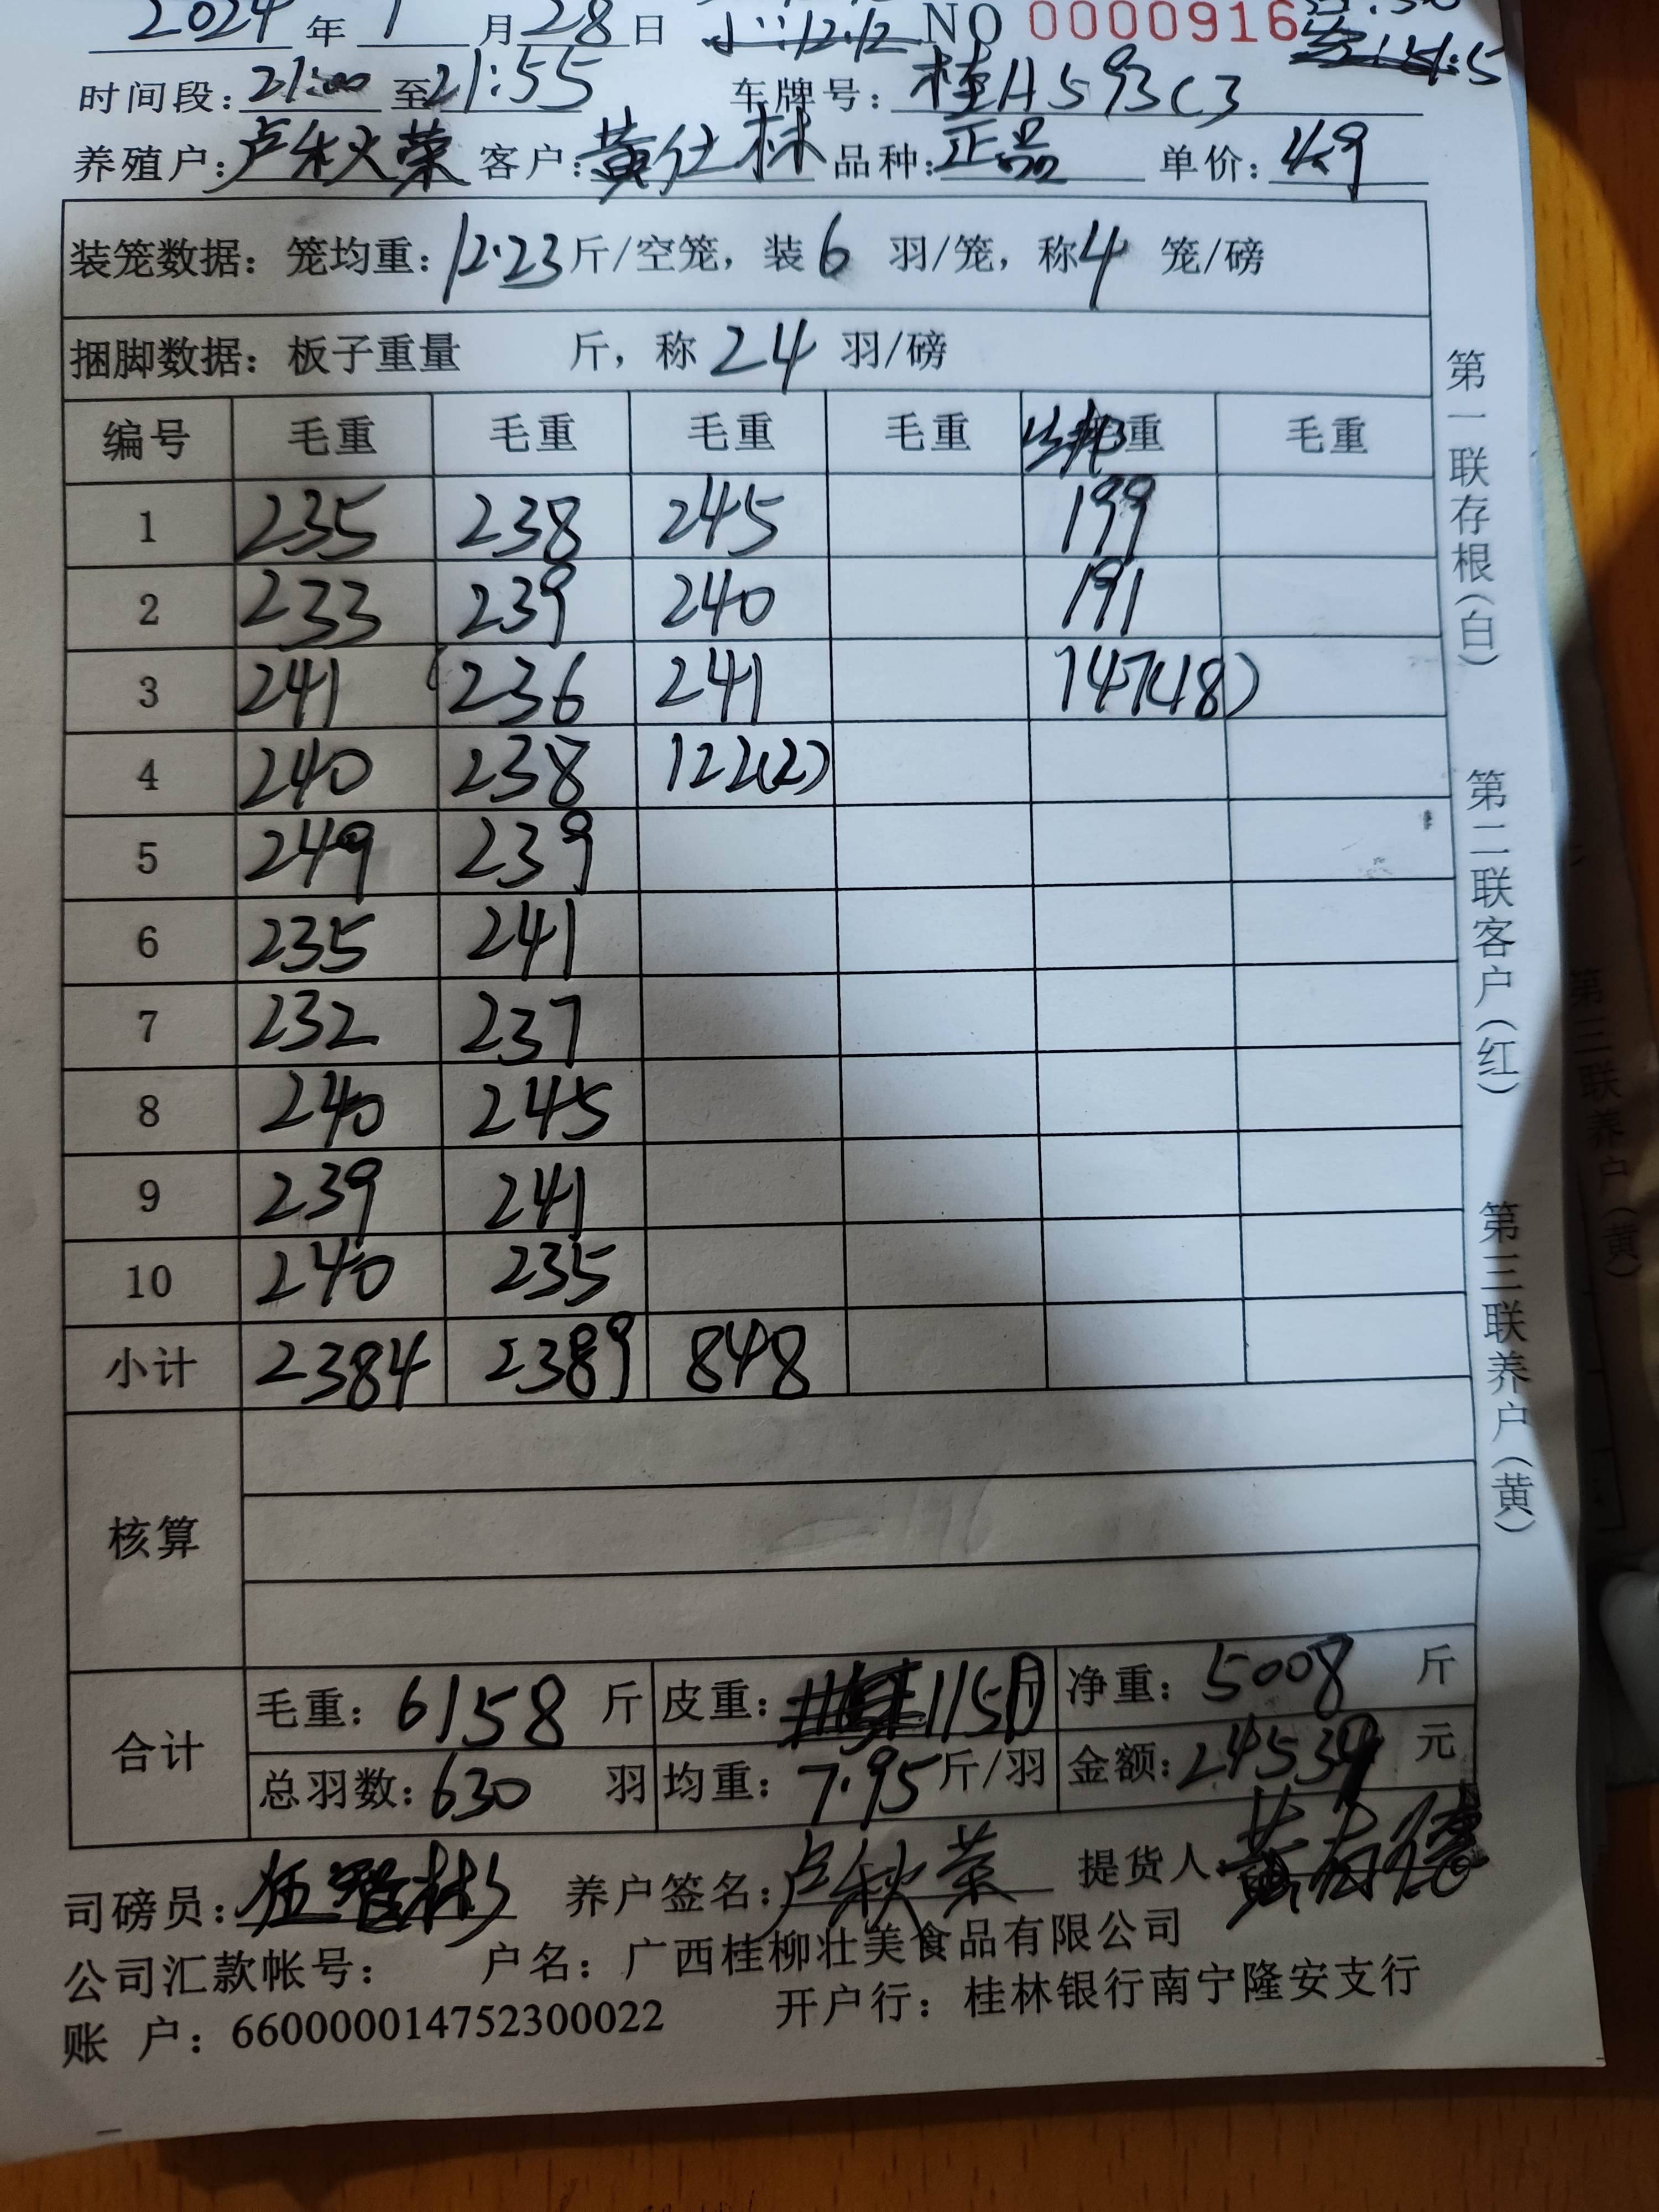 2024年1月28日 NO 0000916
时间段：21:00至21:55 车牌号：桂H593C3
养殖户：卢秋荣 客户：黄仕林 品种：正品 单价：4.9
装笼数据：笼均重：12.23斤/空笼，装6羽/笼，称4笼/磅
捆脚数据：板子重量 斤，称24羽/磅
编号 毛重 毛重 毛重 毛重 重 毛重
1 235 238 245 199
2 233 239 240 191
3 241 236 241 147(18)
4 240 238 122(2)
5 249 239
6 235 241
7 232 237
8 240 245
9 239 241
10 240 235
小计 2384 2389 848
核算
合计 毛重：6158斤 皮重：1150斤 净重：5008斤
总羽数：630羽 均重：7.95斤/羽 金额：24539元
司磅员： 养户签名：卢秋荣 提货人
公司汇款帐号： 户名：广西桂柳壮美食品有限公司
账 户：660000014752300022 开户行：桂林银行南宁隆安支行
第一联存根(白) 第二联客户(红) 第三联养户(黄)
第三联养户(黄)